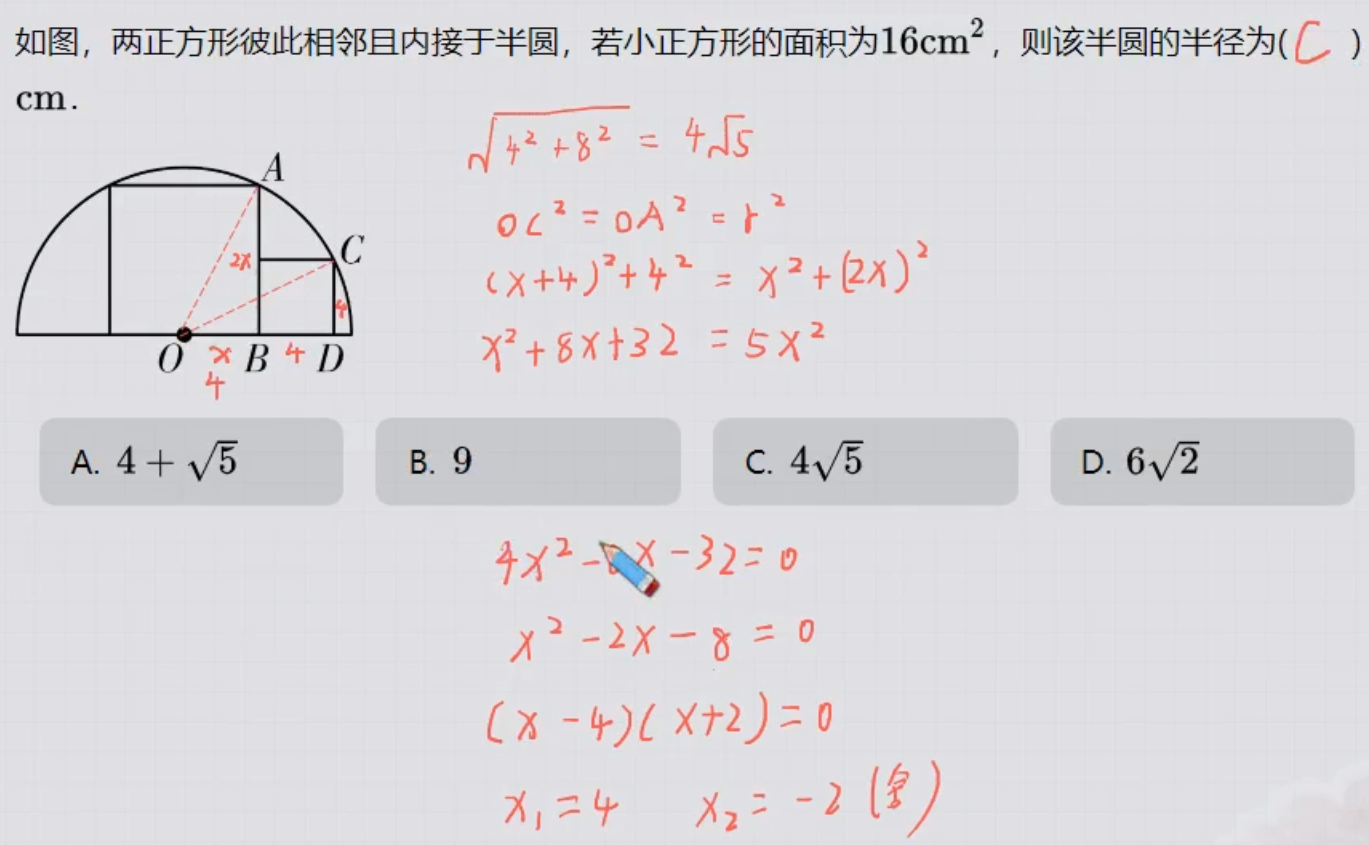 如图，两正方形彼此相邻且内接于半圆，若小正方形的面积为16cm²，则该半圆的半径为( C )
cm．
√(4²+8²) = 4√5
OC² = OA² = r²
(x+4)²+4² = x²+(2x)²
x²+8x+32 = 5x²
A
C
2x
4
O x B 4 D
4
A. 4 + √5
B. 9
C. 4√5
D. 6√2
4x² - x - 32 = 0
x² - 2x - 8 = 0
(x - 4)(x+2) = 0
x₁ = 4 x₂ = -2 (舍)